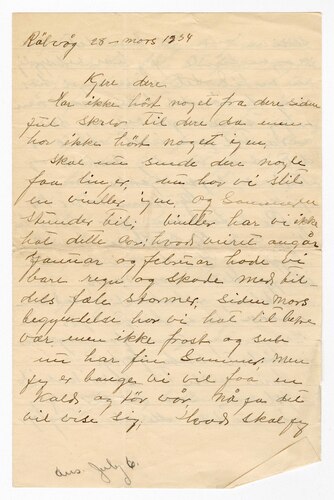 Rålvåg 28 - mars 1934
Kjere dere
Har ikke hört noget fra dere siden
jul skrev til dere da men
har ikke hört noget igen
skal nu sende dere nogle
faa linjer, nu har vi slit
en vinter igen og Sommeren
stunder til; vinter har vi ikke
hat dette Aar; hvad veiret angår
Januar og februar hade vi
bare regn og skode med til-
dels fæle stormer, siden Mars
begyndelse har vi hat til bedre
vær men ikke frost og sne
nu har fin Sommer, Men
jeg er banges vi vil faa en
Kald og tör vår. Nå ja det
vil vise sig, Hvad skal jeg
ans. July 6.